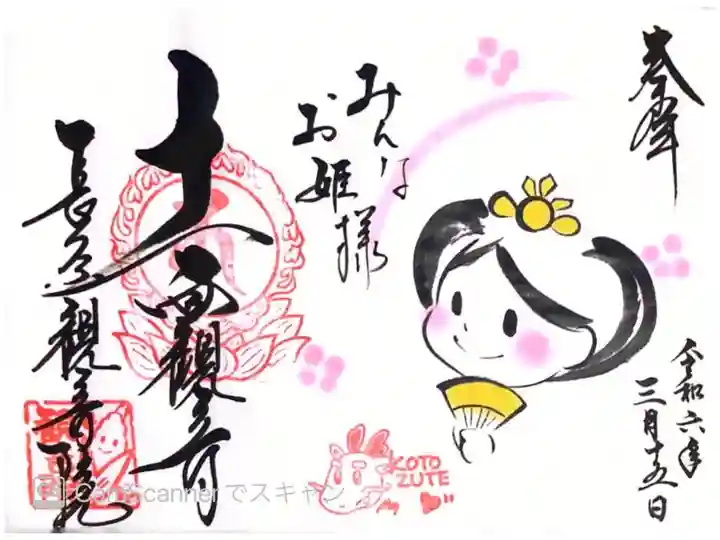 奉拝
令和六年
三月十五日
みんな
お姫様
十一面観音
長谷観音院
KOTO
ZUTE
CamScannerでスキャン